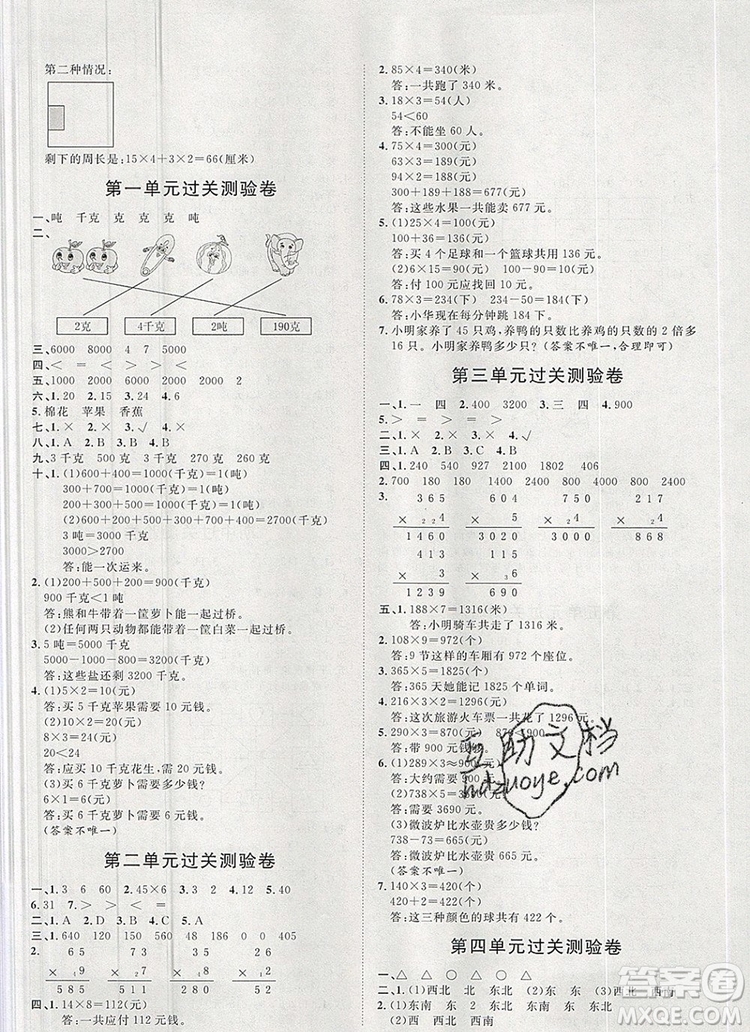 第二种情况:
剩下的周长是:15×4+3×2=66(厘米)
第一单元过关测验卷
一、吨 千克 克 克 克 吨
二、
2克 4千克 2吨 190克
三、6000 8000 4 5 7000 7
四、< = < = > <
五、1000 2000 3000 4000 6000
六、1.20 2.15 3.24 4.
5.棉花 苹果 香蕉
七、1.× 2.× 3.× 4.√ 5.×
八、1.A 2.B 3.A 4.B
九、3千克 500克 270克 260克
十、1.(1)600+400=1000(千克)=1(吨)
300+700=1000(千克)=1(吨)
800+200=1000(千克)=1(吨)
(2)600+400+200+300+700+500=2700(千克)
3吨=3000千克
3000>2700
答:能一次运来。
2.(1)200+500+200=900(千克)
900千克<1吨
答:熊和牛带着一筐萝卜能一起过桥。
(2)任何两只动物都能带着一筐白菜一起过桥。
3.5吨=5000千克
5000-1000-800=3200(千克)
答:这些盐还剩3200千克。
4.(1)5×2=10(元)
答:买5千克苹果需要10元钱。
(2)10×2=20(元)
8×3=24(元)
20<24
答:应买10千克花生,需20元钱。
(3)买6千克萝卜需要多少钱?
6×1=6(元)
答:买6千克萝卜需要6元钱。
(答案不唯一)
第二单元过关测验卷
一、1.3 6 60 2.45×6 3. 4. 5.
6.31 7.> > < = < >
二、1.A 2.D 3.A 4.C 5.B
三、1.640 120 150 560 48 186 0 405
2.
65 53 95 57
×9 ×8 ×4 ×9
585 424 380 513
四、1.14×8=112(元)
答:一共应付112元。
2.85×4=340(米)
答:一共跑了340米。
3.18×3=54(人)
54<60
答:不能坐60人。
4.75×4=300(元)
63×3=189(元)
94×2=188(元)
300+189+188=677(元)
答:这些水果一共能卖677元。
5.(1)25×4=100(元)
100+36=136(元)
答:买4个足球和一个篮球共用136元。
(2)6×15=90(元) 100-90=10(元)
答:付100元应找回10元。
6.78×3=234(下) 234-50=184(下)
答:小华现在每分钟跳184下。
7.小明家养了45只鸡,养鸭的只数比养鸡的只数2倍多
16只。小明家养鸭多少只?(答案不唯一,合理即可)
第三单元过关测验卷
一、1.一 四 2.400 3200 3.三 四 4.900
5.> = > = > <
二、1.× 2.× 3.× 4.× 5.√
三、1.A 2.B 3.C 4.B 5.A
四、1.240 540 927 2100 1802 406
2.700 180 1800 480 1600 2400 4000
3.
365 604 750 658
×4 ×5 ×4 ×4
1460 3020 3000 2632
413 115
×3 ×8
1239 920
五、1.188×7=1316(米)
答:小明骑车共走了1316米。
2.108×9=972(个)
答:9节这样的车厢有972个座位。
3.365×5=1825(个)
答:365天她能记1825个单词。
4.216×3×2=1296(元)
答:这次旅游火车票一共花了1296元。
5.290×3=870(元) 870<900
答:带900元钱够。
答:大约需要900元。
(2)738×5=3690(元)
答:需要3690元。
(3)微波炉比水壶贵多少钱?
738-73=665(元)
答:微波炉比水壶贵665元。
(答案不唯一)
7.140×3=420(个)
420+2=422(个)
答:这三种颜色的球共有422个。
第四单元过关测验卷
一、△ △ ○ △ ○ △
二、1.(1)西北 北 (2)东 东 (3)西北 西南
2.(1)西北 西南
答案圈
MXQE.COM
互助文档
hdzuoye.com